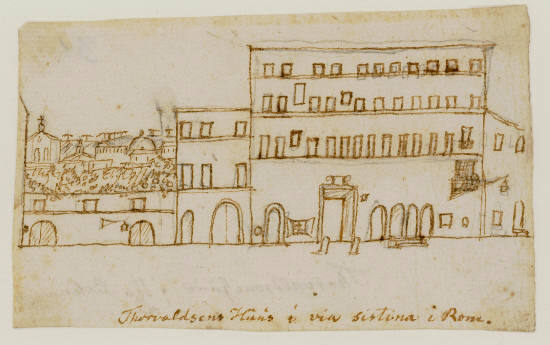 Thorvaldsens Huus i via sistina i Rom.